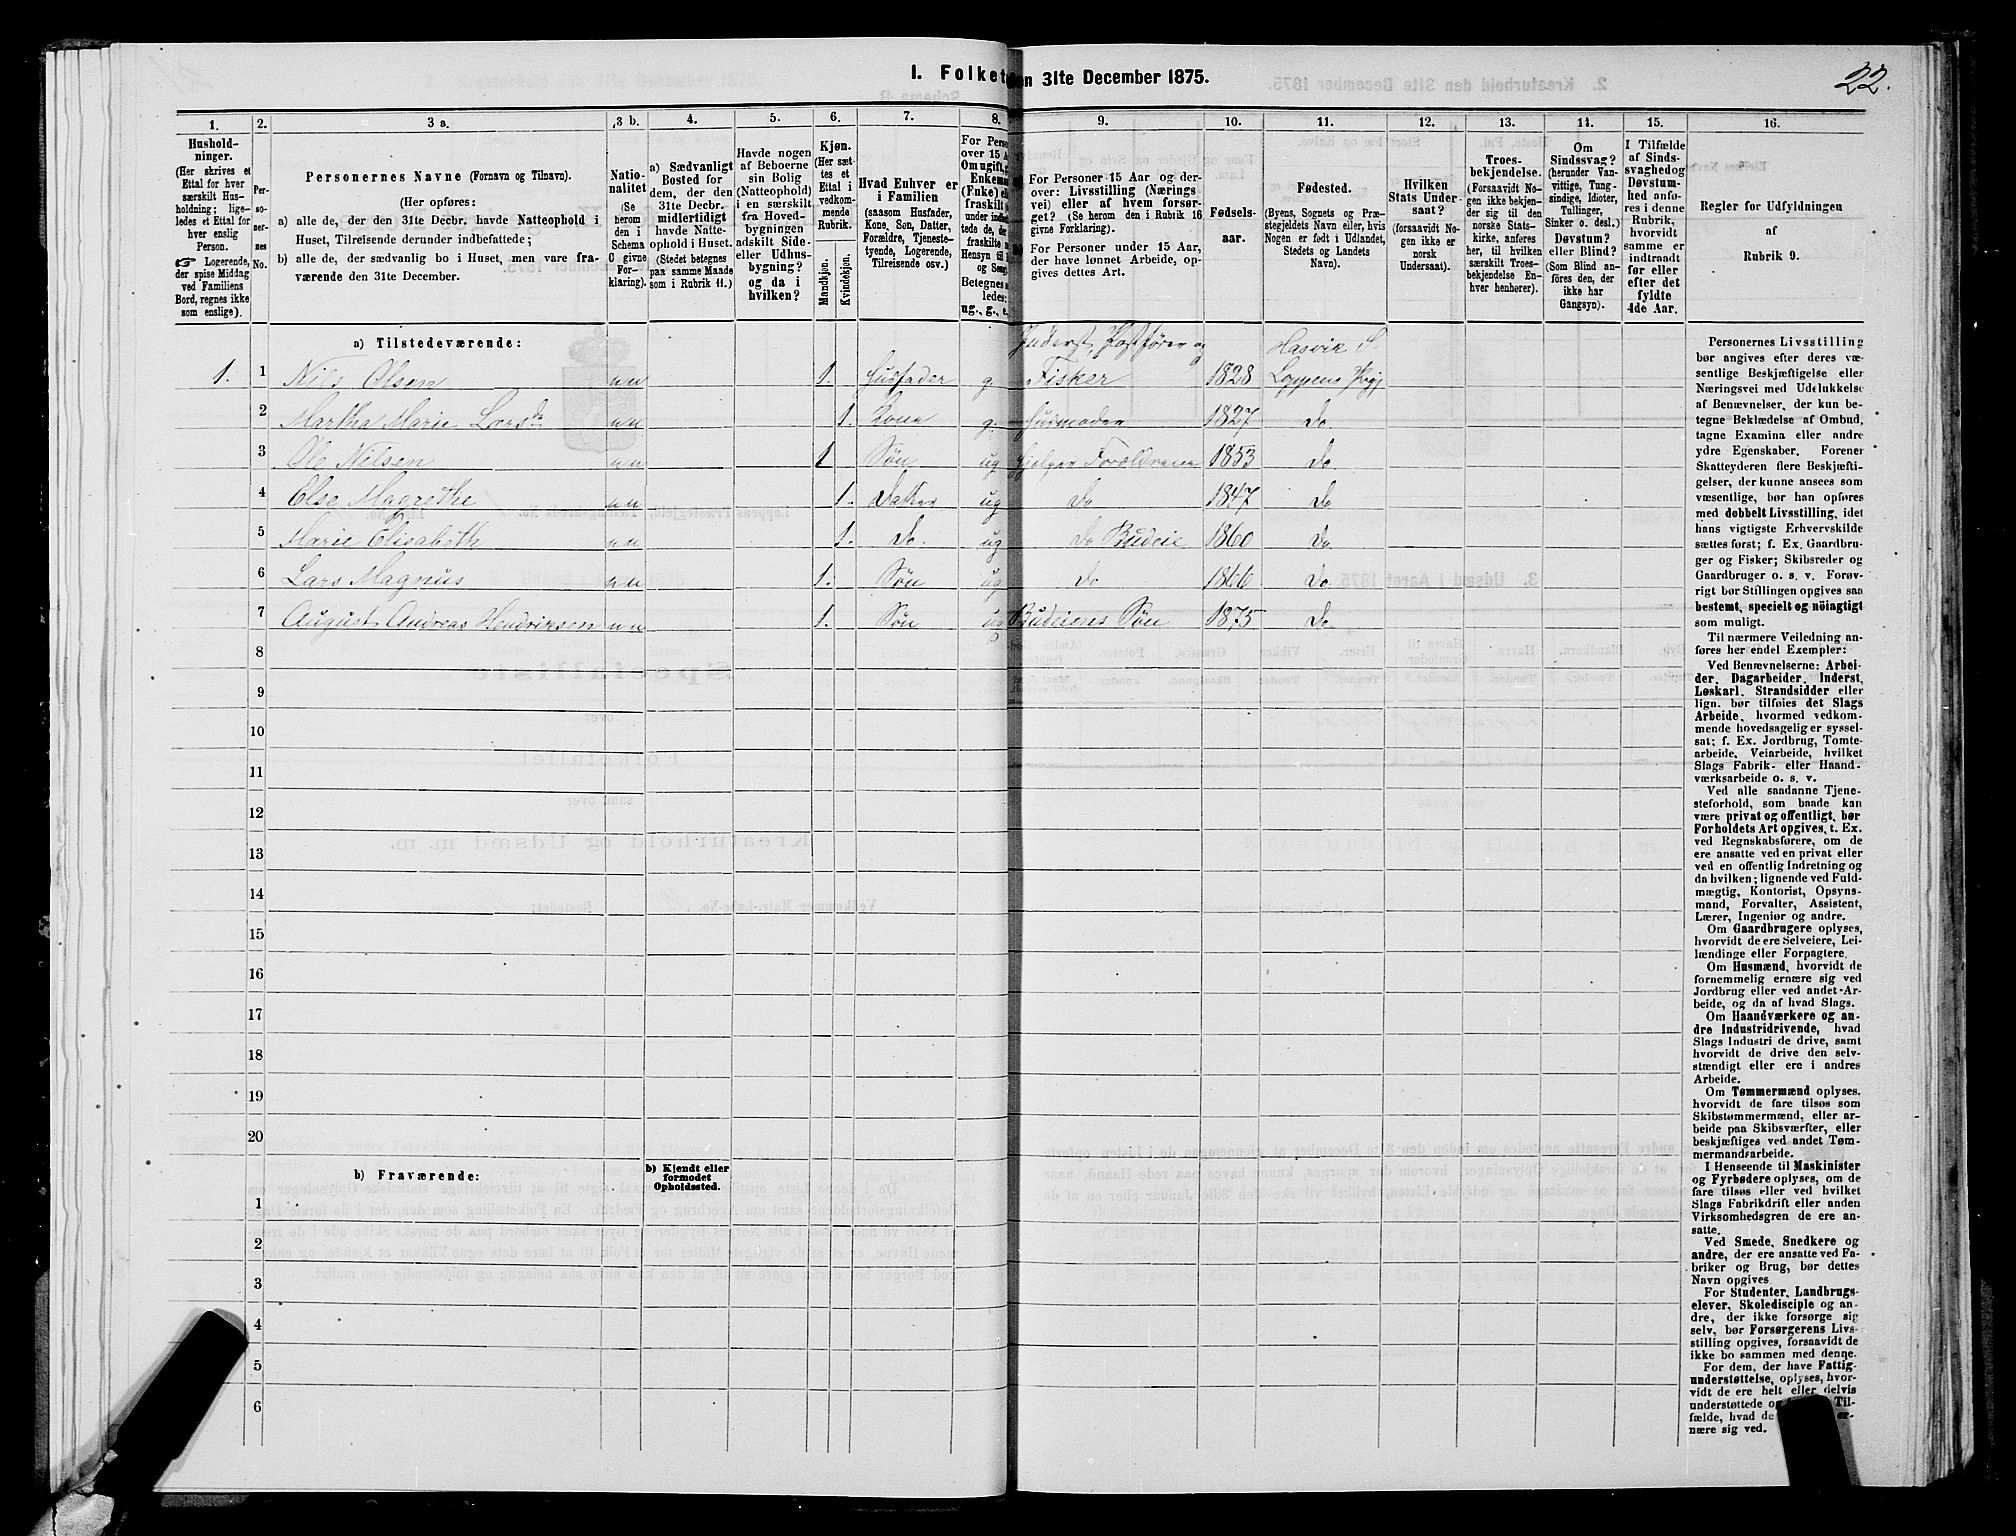 I. Folket en 31te December 1875.
22.
1. 2. 3 a. 3 b. 4. 5. 6. 7. 8. 9. 10. 11. 12. 13. 14. 15. 16.
Hushold-
ninger.
(Her skrives et
Ettal for hver
særskilt Hus-
holdning; lige-
ledes et Ettal for
hver enslig
Person.
☞ Logerende,
der spise Middag
ved Familiens
Bord, regnes ikke
som enslige).
Per-
so-
ner-
nes
No.
Personernes Navne (Fornavn og Tilnavn).
(Her opføres:
a) alle de, der den 31te Decbr. havde Natteophold i
Huset, Tilreisende derunder indbefattede;
b) alle de, der sædvanlig bo i Huset, men vare fra-
værende den 31te December.
Natio-
nalitet
(Se
herom
den i
Schema
C givne
For-
klaring).
a) Sædvanligt
Bosted for
dem, der den
31te Decbr.
midlertidigt
havde Natte-
ophold i Huset.
(Stedet betegnes
paa samme Maade
som i Rubrik 11.)
Havde nogen
af Beboerne
sin Bolig
(Natteophold)
i en særskilt
fra Hoved-
bygningen
adskilt Side-
eller Udhus-
bygning?
og da i
hvilken?
Kjøn.
(Her sæt-
tes et
Ettal i
vedkom-
mende
Rubrik.
Mandkjøn.
Kvindekjøn.
Hvad Enhver er
i Familien
(saasom Husfader,
Kone, Søn, Datter,
Forældre, Tjeneste-
tyende, Logerende,
Tilreisende osv.)
For Perso
over 15 A
Om ugift, g
Enkem
(Enke) el
fraskilt
under indb
tede de, de
fraskilte
Hensyn til
og Seng
Betegnes
ledes:
ug., g., e.
For Personer 15 Aar og der-
over: Livsstilling (Nærings
vei) eller af hvem forsør-
get? (Se herom den i Rubrik 16
givne Forklaring).
For Personer under 15 Aar,
der have lønnet Arbeide, op-
gives dettes Art.
Fødsels-
aar.
Fødested.
(Byens, Sognets og Præ-
stegjeldets Navn eller, hvis
Nogen er født i Udlandet,
Stedets og Landets
Navn).
Hvilken
Stats Under-
saat?
(forsaavidt No-
gen ikke er
norsk
Undersaat).
Troes-
bekjendelse.
(Forsaavidt No-
gen ikke bekjen-
der sig til den
norske Stats-
kirke, anføres
her, til hvilken
særskilt Troes-
bekjendelse En-
hver henhører).
Om
Sindssvag?
(herunder Van-
vittige, Tung-
sindige, Idioter,
Tullinger,
Sinker o. desl.)
Døvstum?
eller Blind?
(Som Blind an-
føres den, der
ikke har
Gangsyn).
I Tilfælde
af Sinds-
svaghed og
Døvstum-
hed anfø-
res i denne
Rubrik,
hvorvidt
samme er
indtraadt
før eller
efter det
fyldte
4de Aar.
Regler for Udfyldningen
af
Rubrik 9.
a) Tilstedeværende:
Inderst, Postfører og Hasvik S
1. 1 Nils Olsen nn 1. Husfader g. Fisker 1828 Loppens Prgj
2 Martha Marie Larsdr nn 1. Kone g. Husmoder 1827 Do.
3 Ole Nilsen nn 1 Søn ug Hjelper Forældrene 1853 Do
4 Else Magrethe nn 1. Datter ug Do 1847 Do
5 Marie Elisabeth nn 1. Do. ug Do Budeie 1860 Do
6 Lars Magnus nn 1. Søn ug Do 1866 Do
7 August Andreas Hendriksen nn 1. Søn ug Budeiens Søn 1875 Do.
8
9
10
11
12
13
14
15
16
17
18
19
20
b) Fraværende:
b) Kjendt eller
formodet
Opholdssted.
1
2
3
4
5
6
Personernes Livsstilling
bør angives efter deres væ-
sentlige Beskjæftigelse eller
Næringsvei med Udelukkelse
af Benævnelser, der kun be-
tegne Beklædelse af Ombud,
tagne Examina eller andre
ydre Egenskaber. Forener
Skatteyderen flere Beskjæfti-
gelser, der kunne ansees som
væsentlige, bør han opføres
med dobbelt Livsstilling, idet
hans vigtigste Erhvervskilde
sættes først; f. Ex. Gaardbru-
ger og Fisker; Skibsreder og
Gaardbruger o. s. v. Forøv-
rigt bør Stillingen opgives saa
bestemt, specielt og nöiagtigt
som muligt.
Til nærmere Veiledning an-
føres her endel Exempler:
Ved Benævnelserne: Arbei-
der, Dagarbeider, Inderst,
Løskarl, Strandsidder eller
lign. bør tilføies det Slags
Arbeide, hvormed vedkom-
mende hovedsagelig er syssel-
sat; f. Ex. Jordbrug, Tomte-
arbeide, Veiarbeide, hvilket
Slags Fabrik- eller Haand-
værksarbeide o. s. v.
Ved alle saadanne Tjene-
steforhold, som baade kan
være privat og offentligt, bør
Forholdets Art opgives, t. Ex.
ved Regnskabsførere, om de
ere ansatte ved en privat eller
ved en offentlig Indretning og
da hvilken; lignende ved Fuld-
mægtig, Kontorist, Opsyns-
mand, Forvalter, Assistent,
Lærer, Ingeniør og andre.
Om Gaardbrugere oplyses,
hvorvidt de ere Selveiere, Lei-
lændinge eller Forpagtere.
Om Husmænd, hvorvidt de
fornemmelig ernære sig ved
Jordbrug eller ved andet Ar-
beide, og da af hvad Slags.
Om Haandværkere og an-
dre Industridrivende, hvad
Slags Industri de drive, samt
hvorvidt de drive den selv-
stændigt eller ere i andres
Arbeide.
Om Tømmermænd oplyses,
hvorvidt de fare tilsøs som
Skibstømmermænd, eller ar-
beide paa Skibsværfter, eller
beskjæftiges ved andet Tøm-
mermandsarbeide.
I Henseende til Maskinister
og Fyrbødere oplyses, om de
fare tilsøs eller ved hvilket
Slags Fabrikdrift eller anden
Virksomhedsgren de ere an-
satte.
Ved Smede, Snedkere og
andre, der ere ansatte ved Fa-
briker og Brug, bør dettes
Navn opgives.
For Studenter, Landbrugs-
elever, Skoledisciple og an-
dre, der ikke forsørge sig
selv, bør Forsørgerens Livs-
stilling opgives, forsaavidt de
ikke bo sammen med denne.
For dem, der have Fattig-
understøttelse, oplyses, hvor-
vidt de ere helt eller delvis
understøttede og Til-
fælde, hvad de er-
nære sig ved.